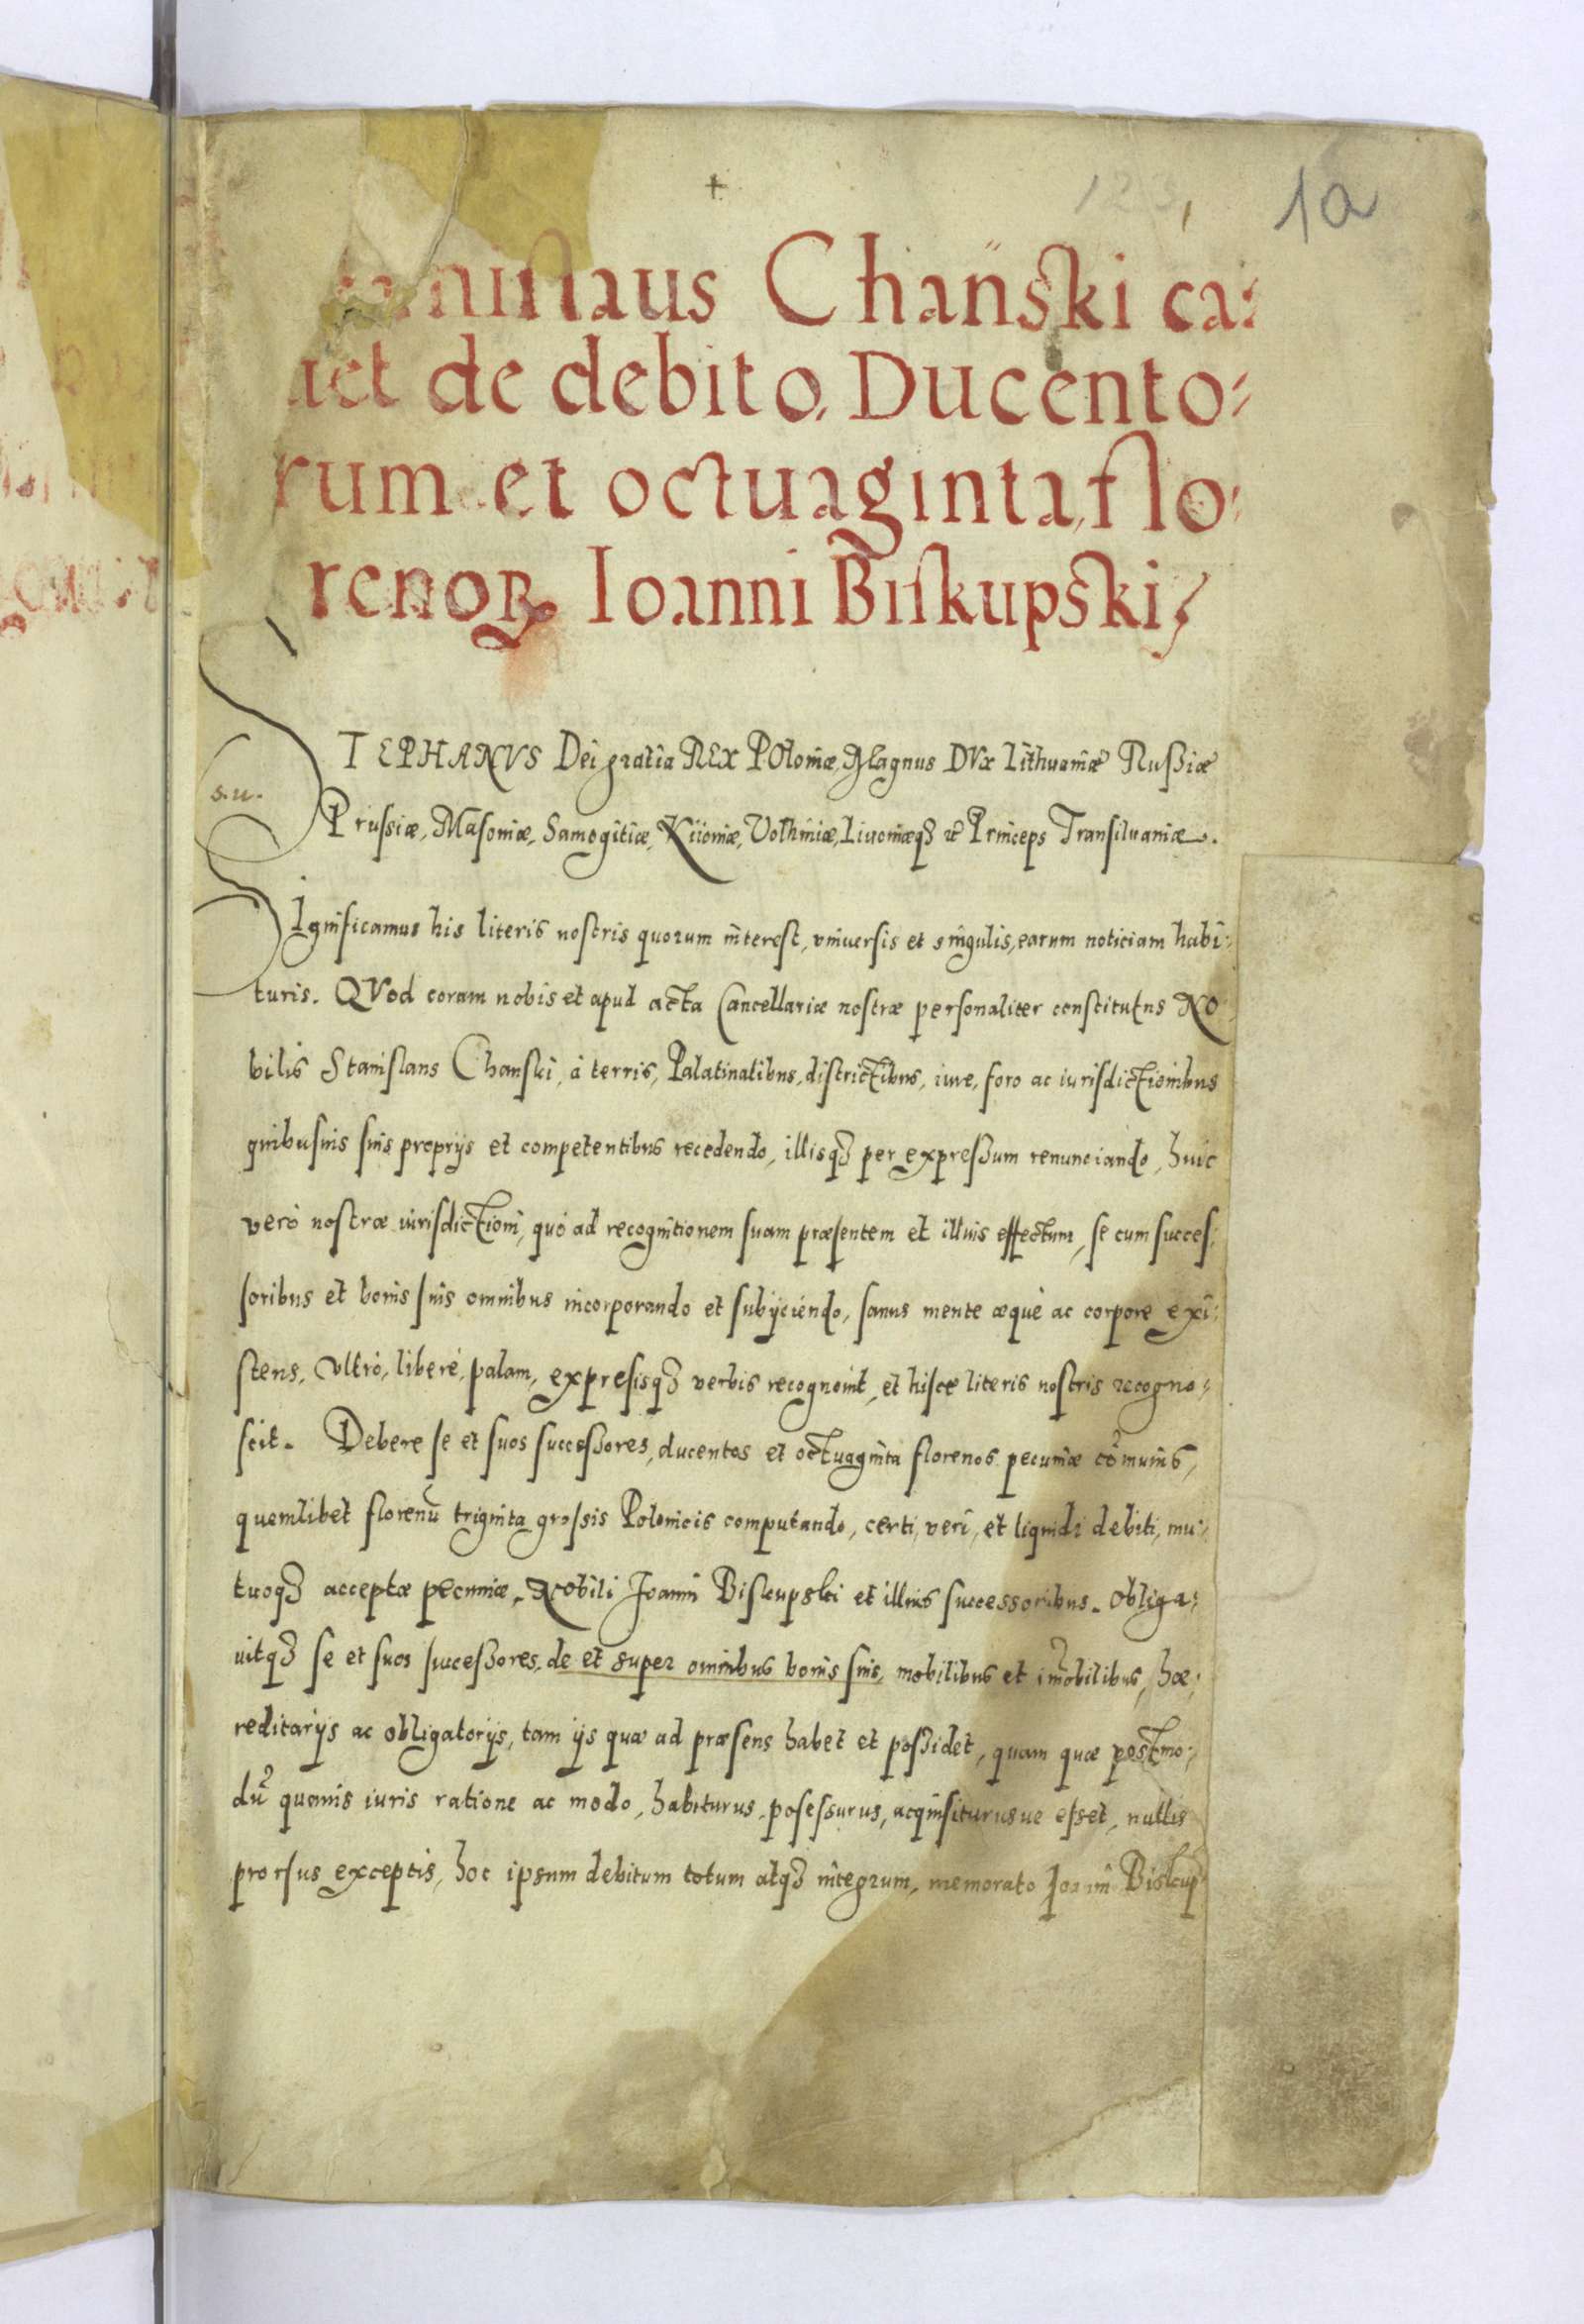 +
123
1a
nislaus Chański ca:
uet de debito, Ducento:
rum et octuaginta, flo:
renoꝝ Ioanni Biskupski,
STEPHANVS Dei gratia REX POloniæ, Magnus DVx Lithuaniæ Russiæ
s.u.
Prussiæ, Masoniæ, Samogitiæ, Kiioniæ, Volhiniæ, Liuoniæqȝ &c Princeps Transiluaniæ.
SIgnificamus his literis nostris quorum interest, vniuersis et singulis, earum noticiam habi:
turis. QVod coram nobis et apud acta Cancellariæ nostræ personaliter constitutus NO:
bilis Stanislaus Chanski, à terris, Palatinatibus, districtibus, iure, foro ac iurisdictionibus
quibusuis suis proprijs et competentibus recedendo, illisqȝ per expressum renunciando, huic
verò nostræ iurisdictioni, quò ad recognitionem suam præsentem et illius effectum, se cum succes:
soribus et bonis suis omnibus incorporando et subijciendo, sanus mente æquè ac corpore exi:
stens, Vltrò, liberè, palam, expresisqȝ verbis recognouit, et hisce literis nostris recogno:
scit. Debere se et suos successores, ducentos et octuaginta florenos pecuniæ cõmunis,
quemlibet florenũ triginta grossis Polonicis computando, certi, veri, et liquidi debiti, mu:
tuoqȝ acceptæ pecuniæ, Nobili Joanni Biskupski et illius successoribus. Obliga:
uitqȝ se et suos successores, de et super omnibus bonis suis, mobilibus et im̃obilibus, hæ:
reditarijs ac obligatorijs, tam ijs quæ ad præsens habet et possidet, quam quæ postmo:
dũ quouis iuris ratione ac modo, habiturus, posessurus, acquisiturusue esset, nullis
prorsus exceptis, hoc ipsum debitum totum atqȝ integrum, memorato Joanni Biskup